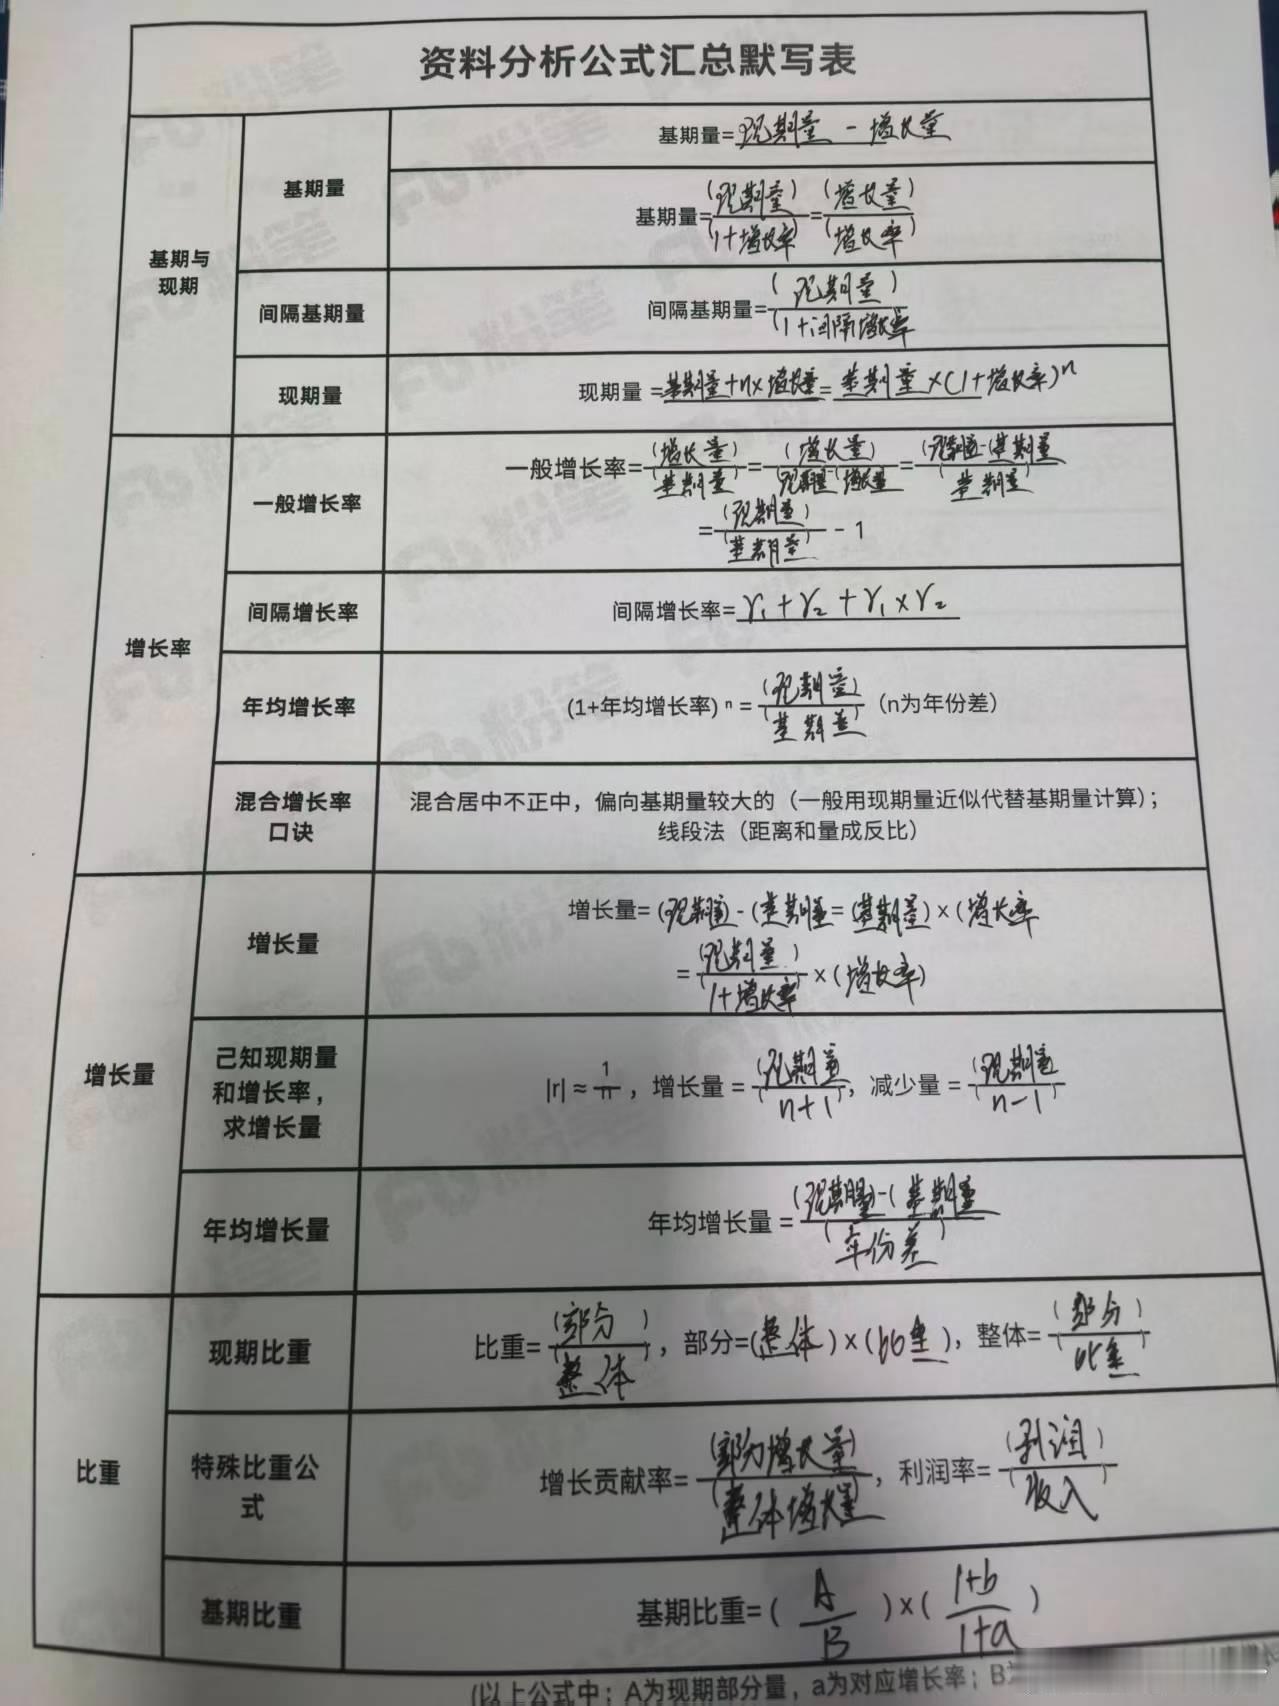 资料分析公式汇总默写表
基期与
现期
基期量
基期量=现期量 - 增长量
基期量=(现期量)/(1+增长率)=(增长量)/(增长率)
间隔基期量
间隔基期量=(现期量)/(1+间隔增长率
现期量
现期量=基期量+n×增长量=基期量×(1+增长率)ⁿ
增长率
一般增长率
一般增长率=(增长量)/(基期量)=(增长量)/(现期量-增长量)=(现期量-(基期量/(基期量)
=(现期量)/(基期量)-1
间隔增长率
间隔增长率=r₁+r₂+r₁×r₂
年均增长率
(1+年均增长率)ⁿ=(现期量)/(基期差)(n为年份差)
混合增长率
口诀
混合居中不正中，偏向基期量较大的（一般用现期量近似代替基期量计算）；
线段法（距离和量成反比）
增长量
增长量
增长量=(现期量)-(基期量=(基期量)×(增长率
=(现期量)/(1+增长率)×(增长率)
已知现期量
和增长率，
求增长量
|r|≈1/n，增长量=(现期量)/(n+1)，减少量=(现期量)/(n-1)
年均增长量
年均增长量=(现期量)-(基期量/(年份差)
比重
现期比重
比重=(部分)/(整体)，部分=(整体)×(比重)，整体=(部分)/(比重)
特殊比重公
式
增长贡献率=(部分增长量)/(整体增长量)，利润率=(利润)/(收入)
基期比重
基期比重=(A/B)×(1+b/1+a)
(以上公式中：A为现期部分量，a为对应增长率；B